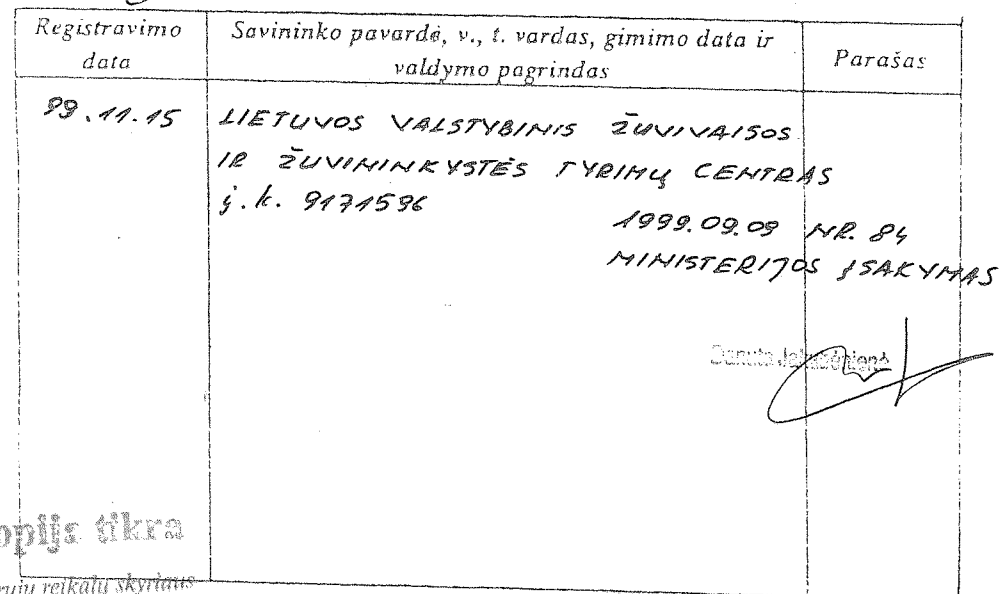 Registravimo data
Savininko pavardė, v., t. vardas, gimimo data ir
valdymo pagrindas
Parašas
99.11.15
LIETUVOS VALSTYBINIS ŽUVIVAISOS
IR ŽUVININKYSTĖS TYRIMŲ CENTRAS
į.k. 9171596
1999.09.09 NR. 84
MINISTERIJOS ĮSAKYMAS
Danuta
opija tikra
reikalų skyriaus